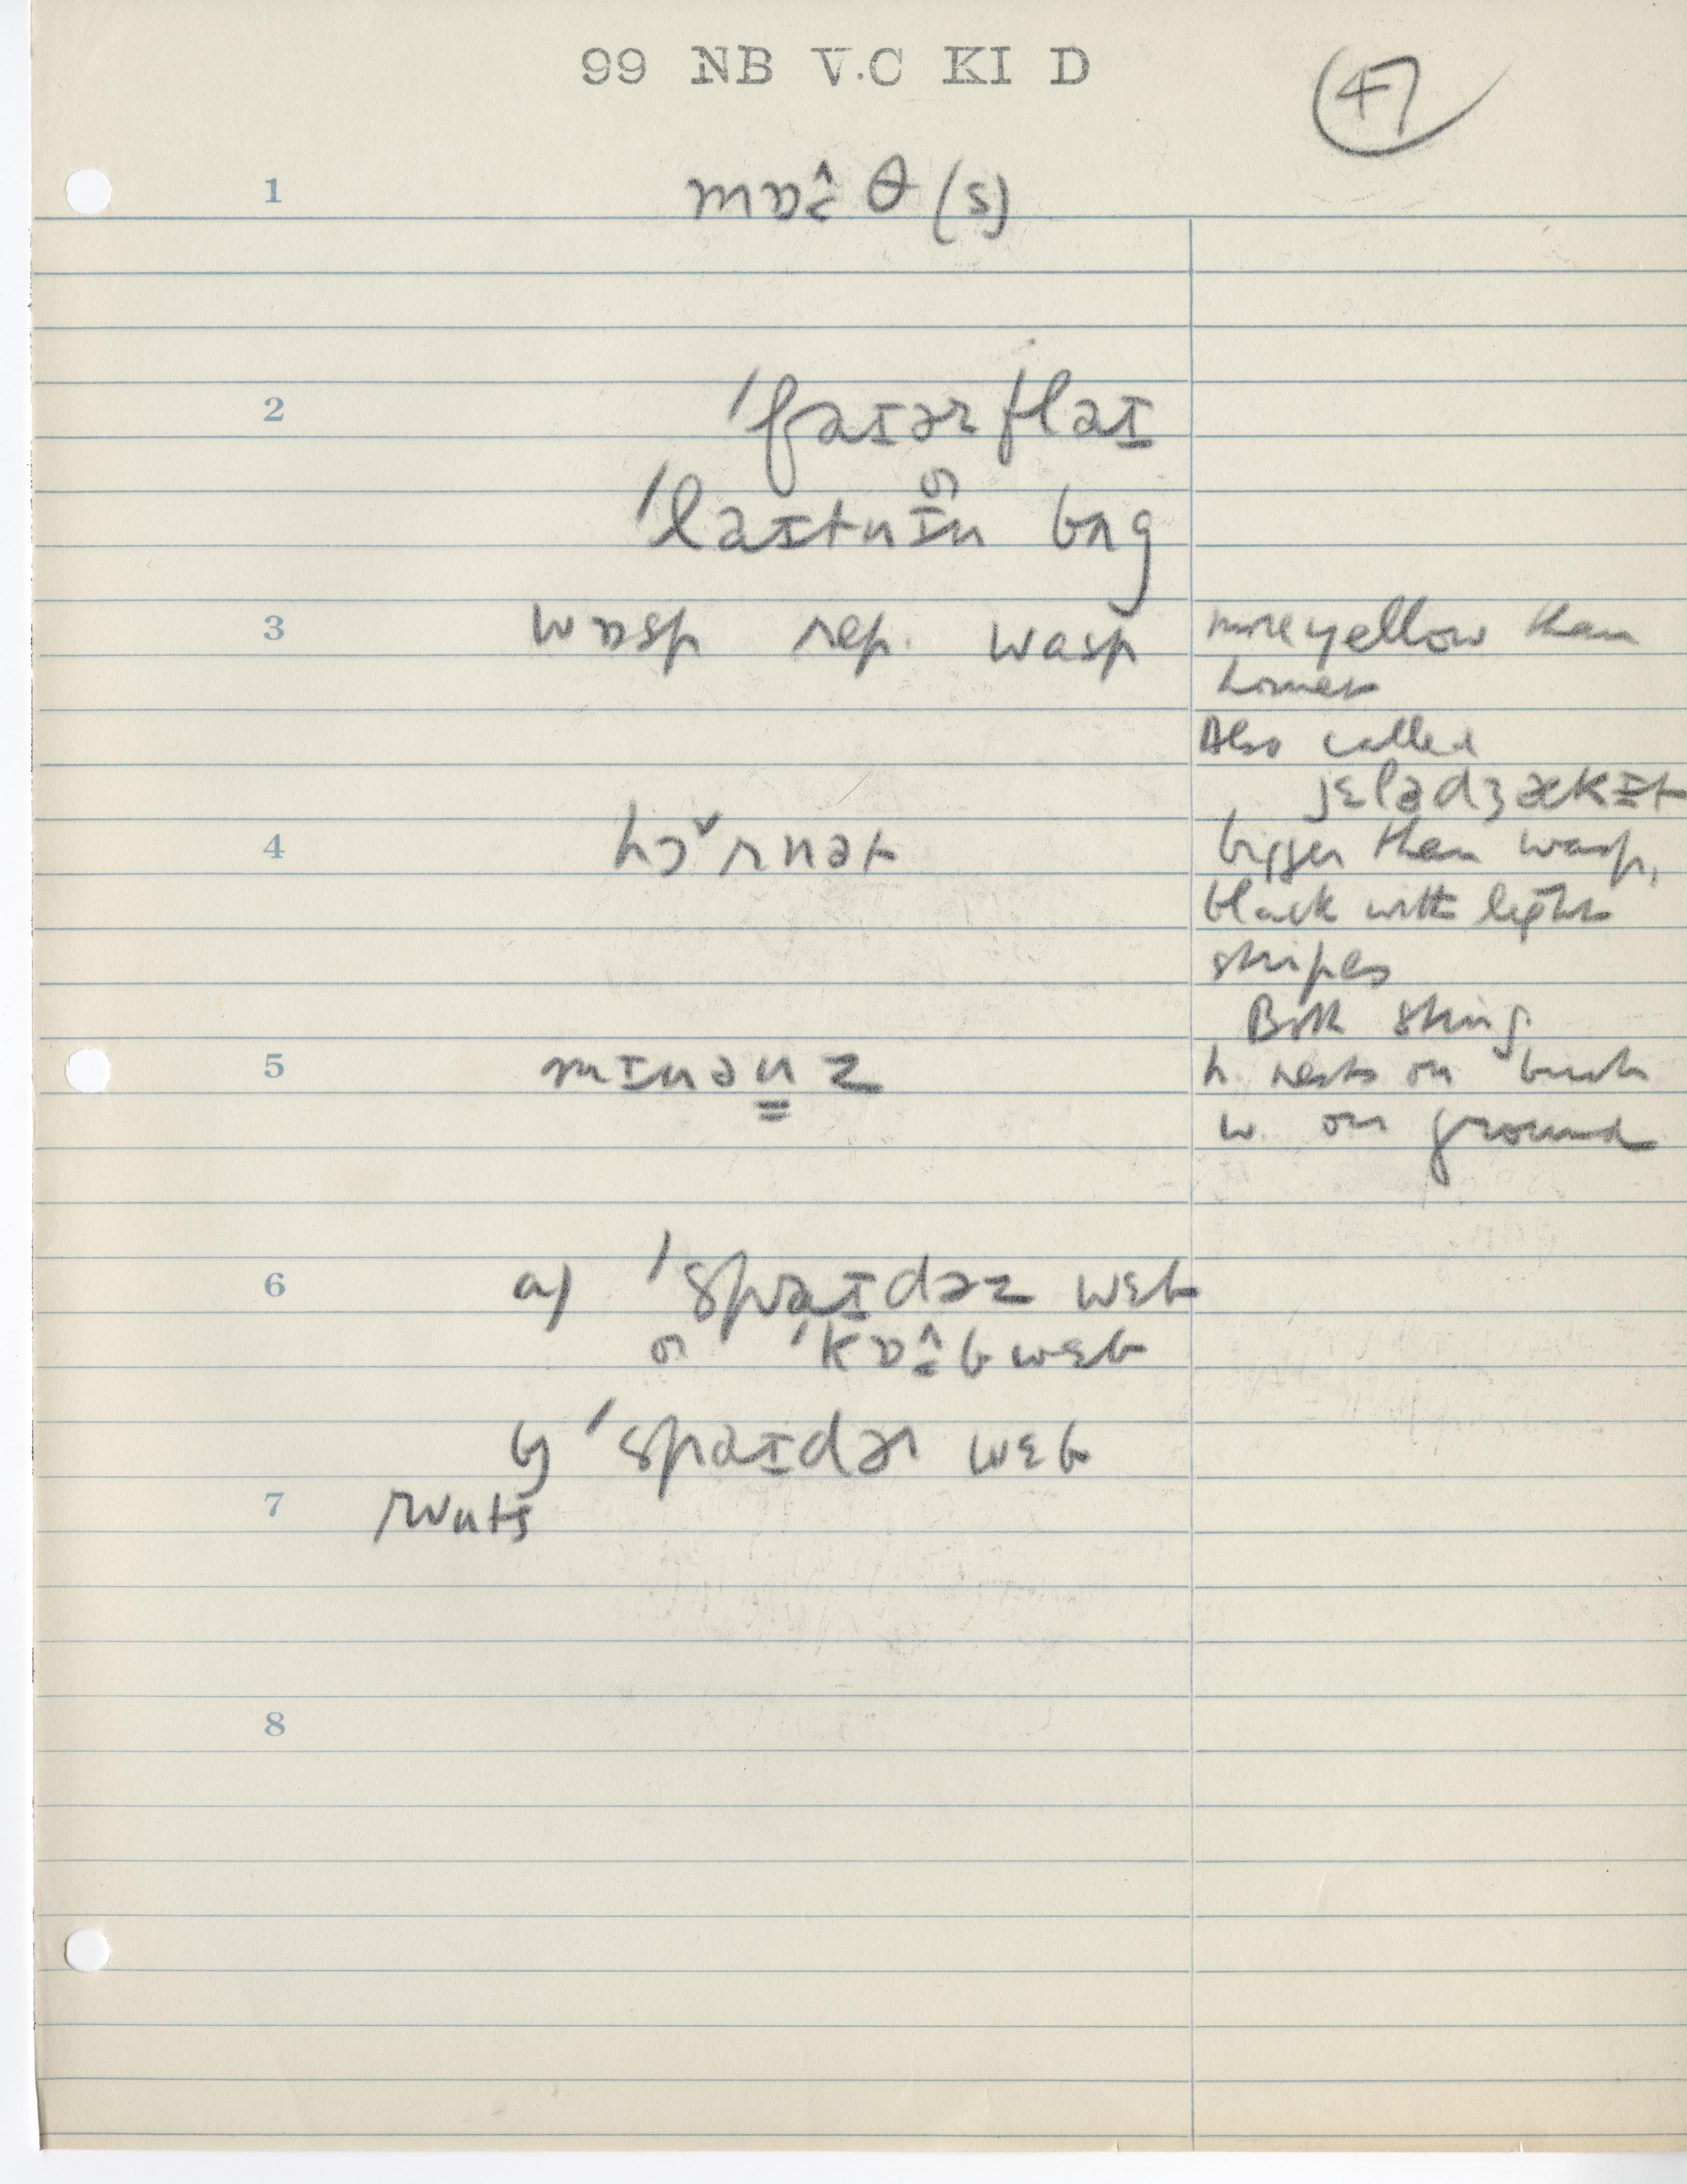 99 NB V.C KI D
47
1 mɒ̠̂ θ (s)
2 ˈfaɪər flaɪ
or
ˈlaɪtnɪn bʌg
3 wɒsp rep. wasp more yellow than
hornet
Also called
jɛlədʒækɪt
4 hɔ̌rnət bigger than wasp,
black with light
stripes
Both sting.
5 mɪnəu̳z h. nests on bush
w. on ground
6 a) ˈspaɪdəz wɛb
or ˈkɒ̠̂bwɛb
b) ˈspaɪdər wɛb
7 ruuts
8